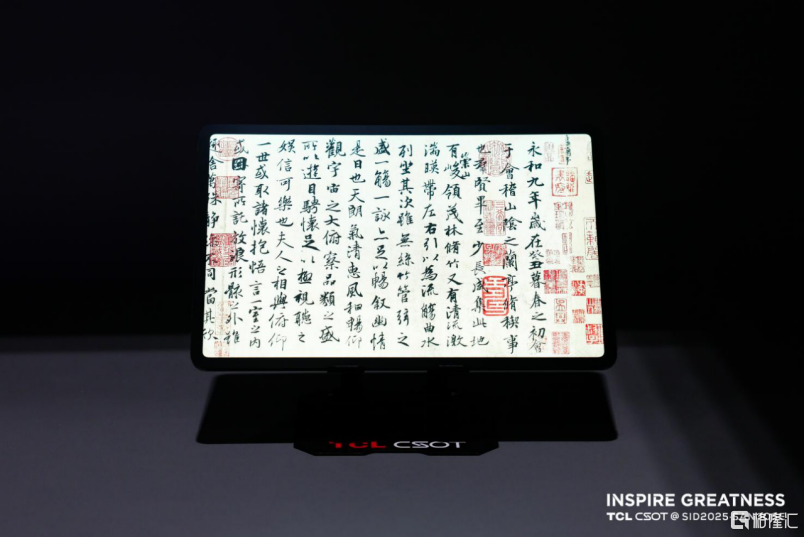 永和九年歲在癸丑暮春之初會
于會稽山陰之蘭亭脩稧事
也羣賢畢至少長咸集此地
有崇山峻領茂林脩竹又有清流激
湍暎帶左右引以為流觴曲水
列坐其次雖無絲竹管弦之
盛一觴一詠亦足以暢敘幽情
是日也天朗氣清惠風和暢仰
觀宇宙之大俯察品類之盛
所以遊目騁懷足以極視聽之
娛信可樂也夫人之相與俯仰
一世或取諸懷抱悟言一室之內
或因寄所託放浪形骸之外雖
舍萬殊靜躁不同當其欣
TCL CSOT
INSPIRE GREATNESS
TCL CSOT @ SID2025
格隆汇